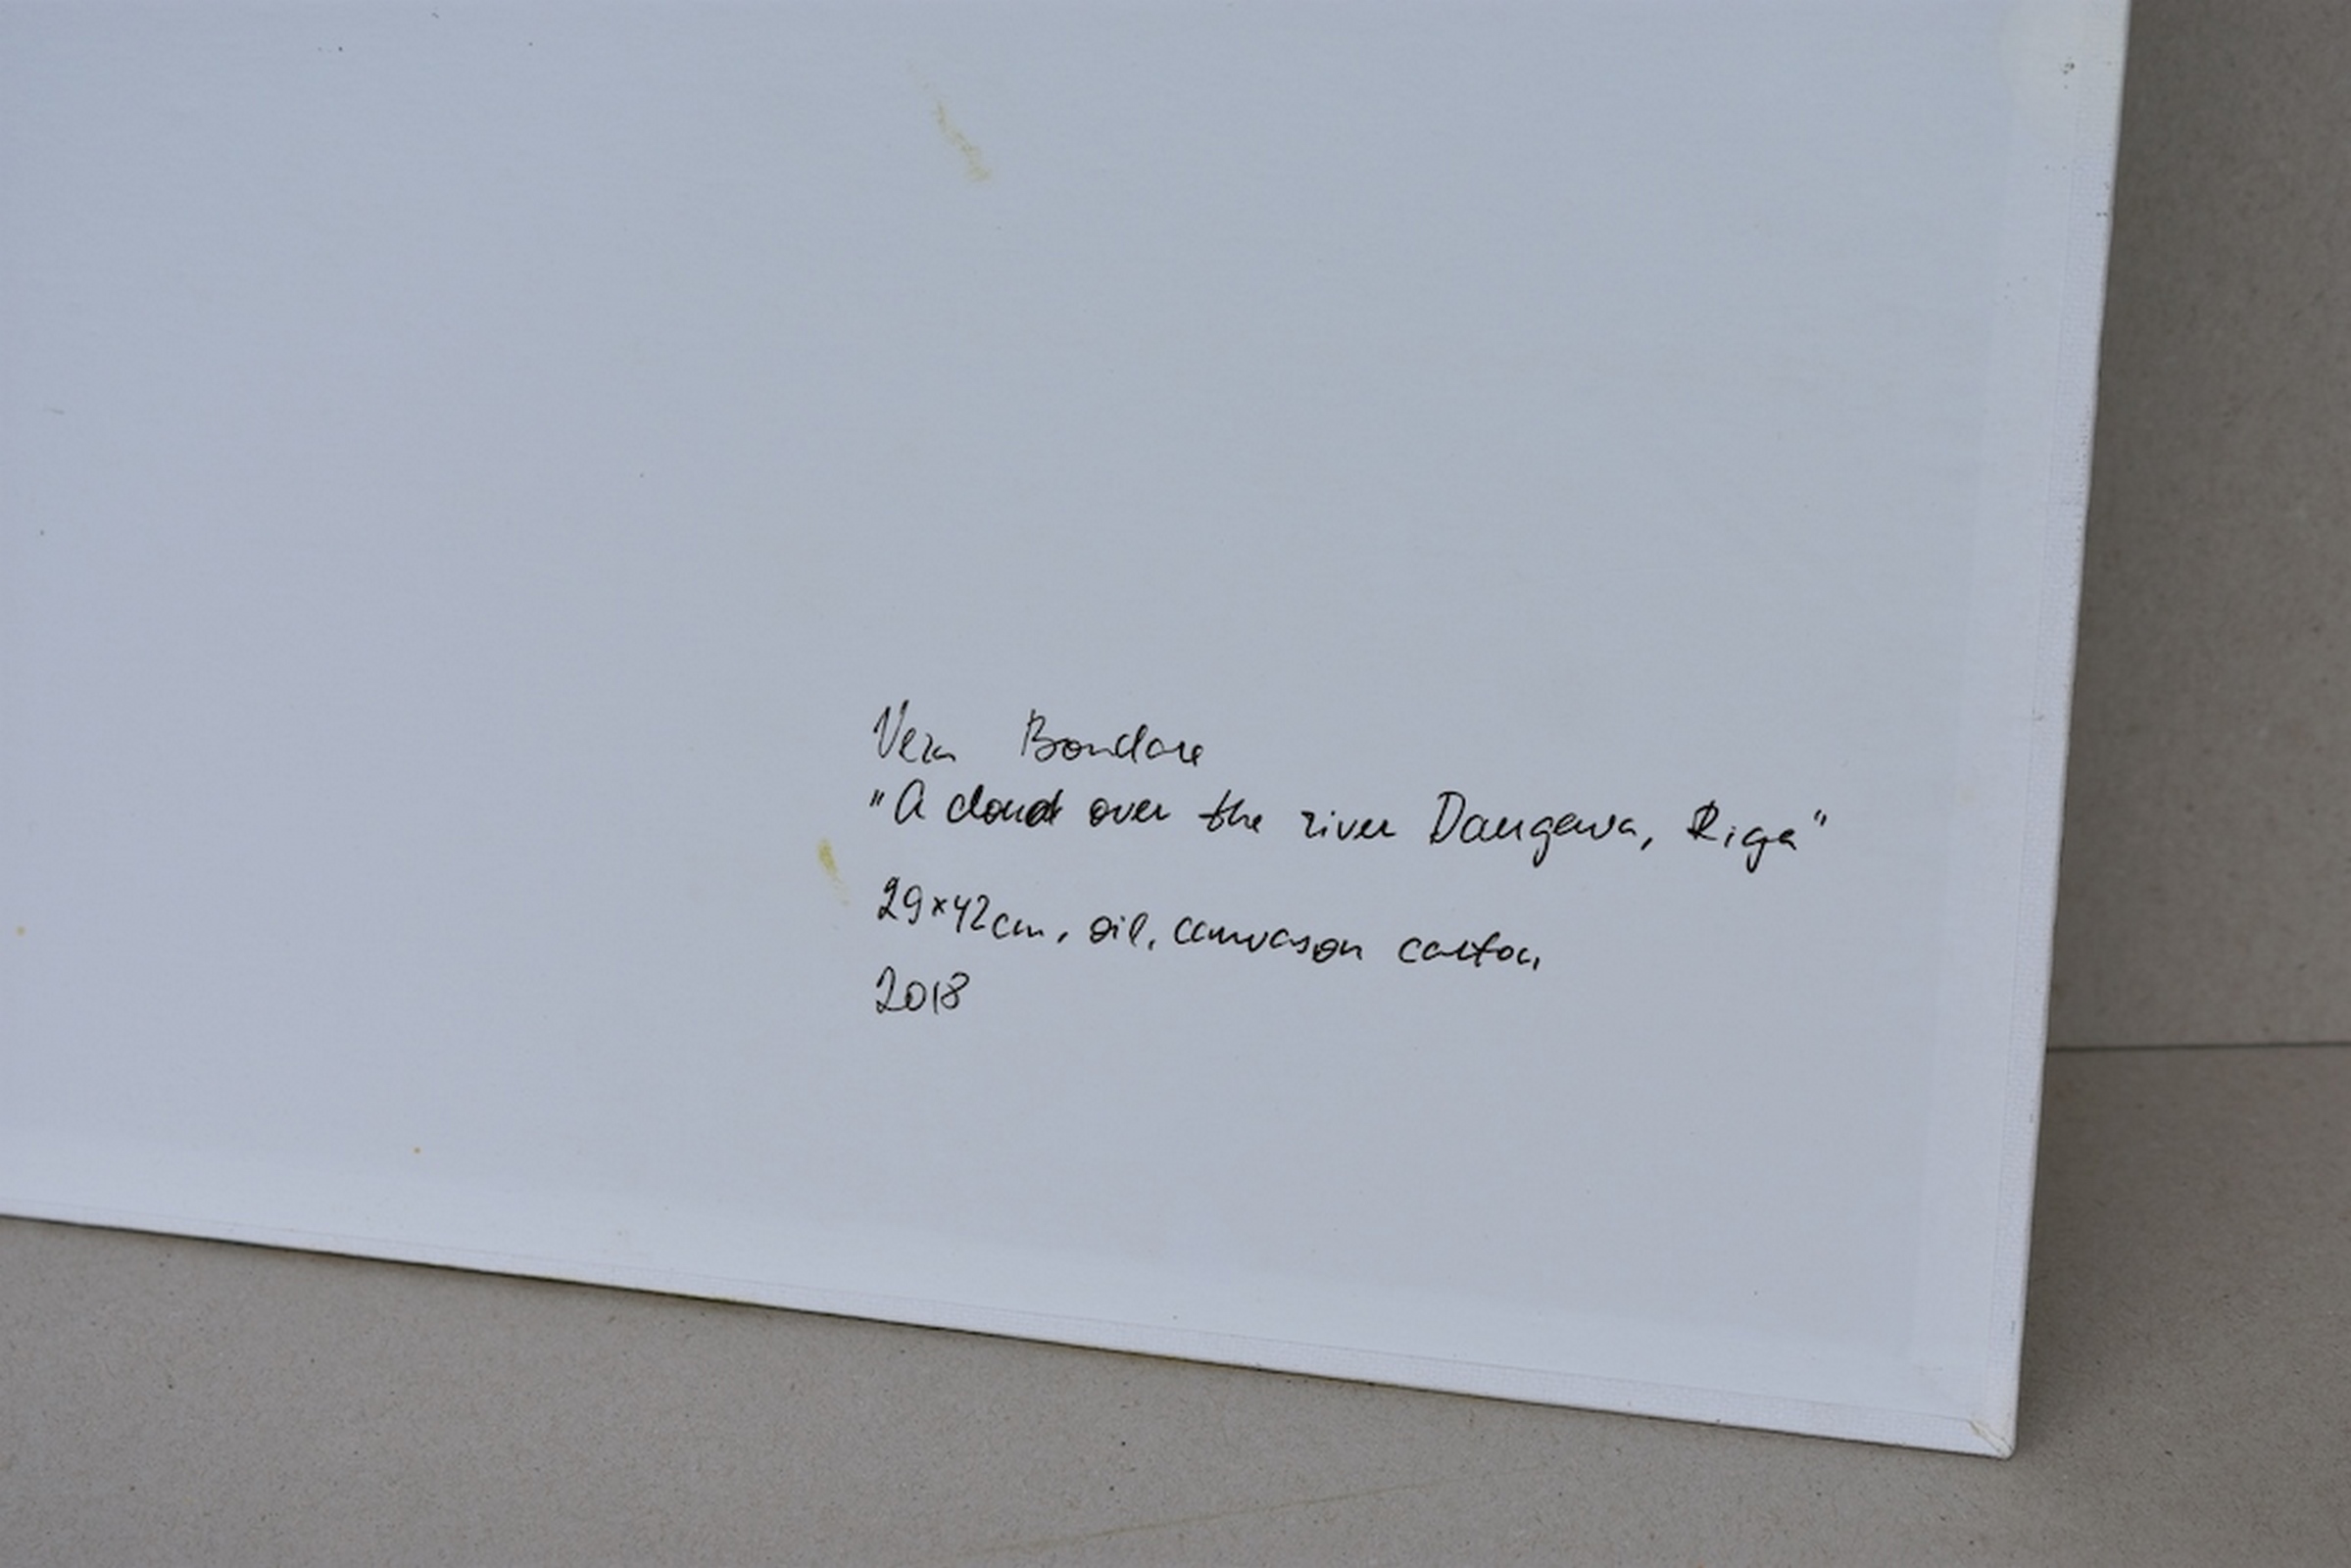 Vera Bondare
"A cloud over the river Daugewa, Riga"
29×42cm, oil, canvas on carton,
2018